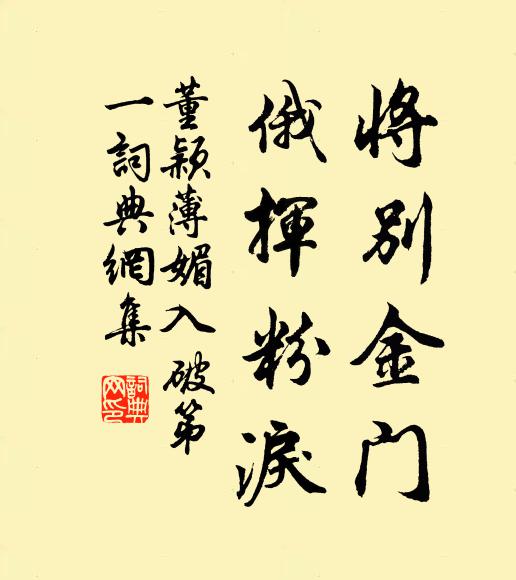 将别金门
俄揮粉淚
董穎薄媚入破第
一詞典網集
詞典网印